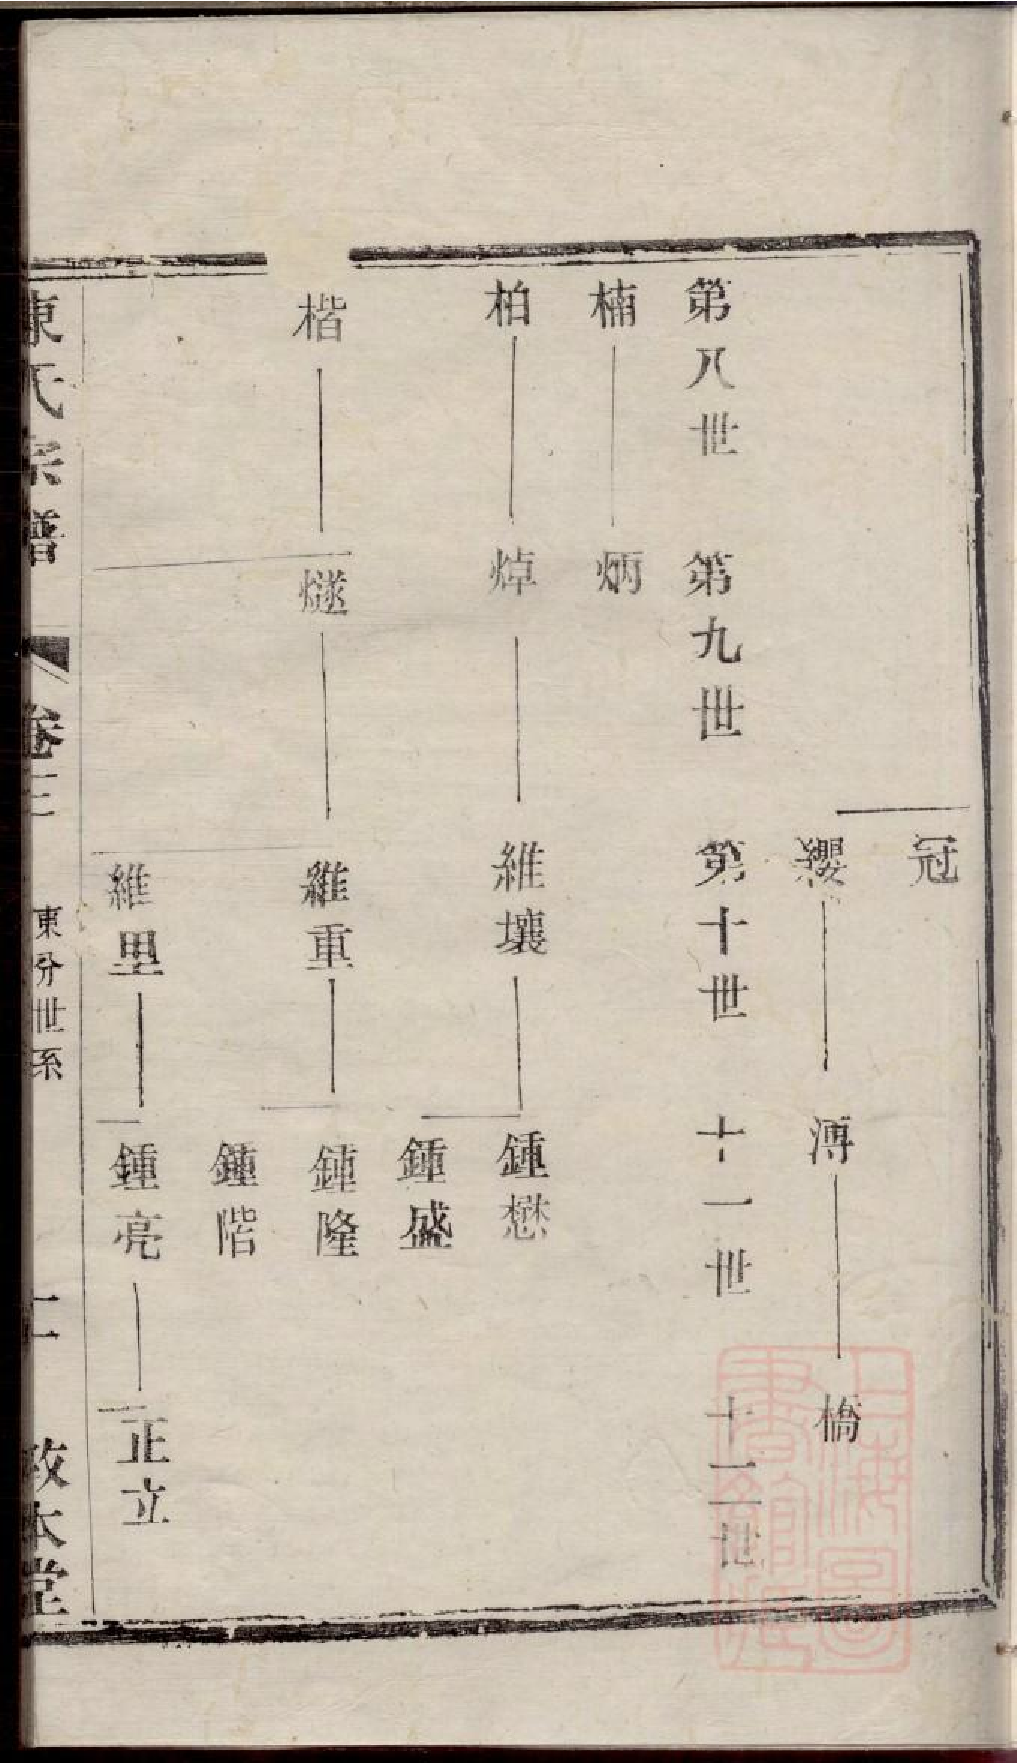 冠
纓 溥 橋
第八世 第九世 第十世 十一世 十二世
楠 炳
柏 焯 維壤 鍾懋
鍾盛
楷 燧 維重 鍾隆
鍾階
維里 鍾亮 正立
陳氏宗譜 卷三 東分世系 二 敦本堂
上海圖書館藏